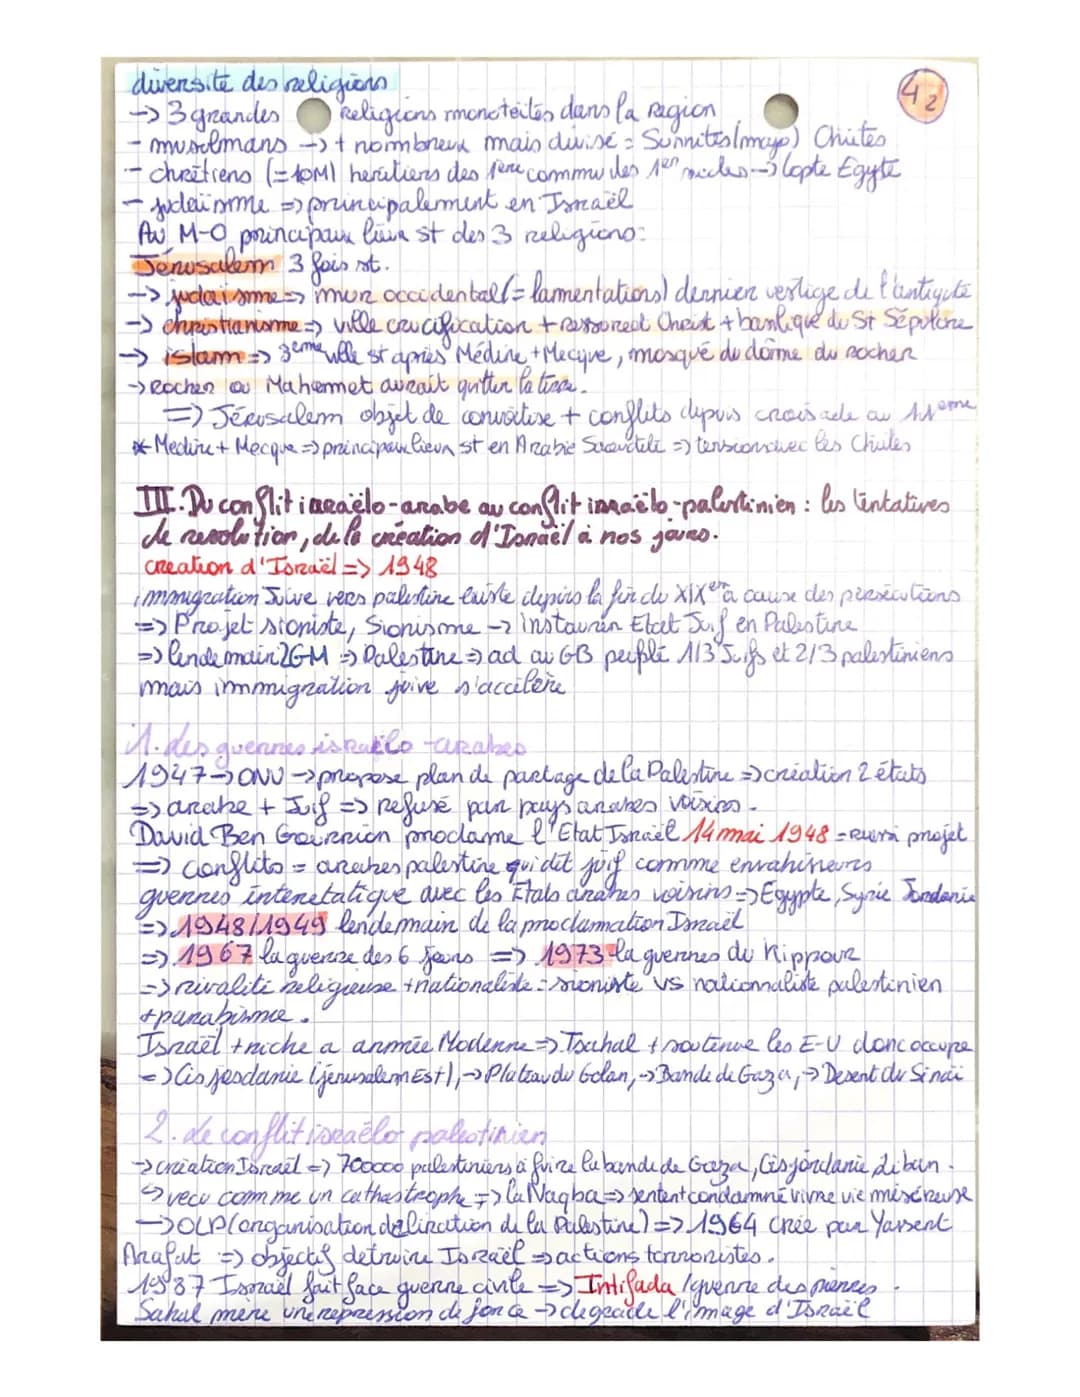 diversité des religions
42
-> 3 grandes religions monoteites dans la region
- musulmans -> + nombreux mais divisé = Sunnites (majo) Chiites
- chrétiens (=10M) heritiers des 1ère commu des 1er siecles -> Copte Egyte
- judaïsme => principalement en Israël
Au M-O principaux lieux st des 3 religions:
Jérusalem 3 fois st.
-> judaisme => mur occidental (= lamentations) dernier vestige de l'antiquité
-> christianisme => ville crucification + ressurect Christ + basilique du St Sépulcre
-> islam => 3eme ville st après Médine + Mecque, mosqué du dôme du rocher
-> rocher ou Mahommet aurait quitter la terre.
=> Jérusalem objet de convoitise + conflits depuis croisade au 11eme
* Medine + Mecque => principaux lieux st en Arabie Saoudite => tension avec les Chiites
III. Du conflit israëlo-arabe au conflit israëlo-palestinien : les tentatives
de resolution, de la création d'Israël à nos jours.
creation d'Israël => 1948
immigration Juive vers palestine existe depuis la fin du XIXem à cause des persécutions
=> Projet sioniste, Sionisme -> instaurer Etat Juif en Palestine
=> lendemain 2GM => Palestine => ad au GB peuplé 1/3 Juifs et 2/3 palestiniens
mais immigration juive s'accélère
1. des guerres israëlo-arabes
1947 -> ONU -> propose plan de partage de la Palestine => création 2 états
=> arabe + Juif => refusé par pays arabes voisins.
David Ben Gourrion proclame l'Etat Israël 14 mai 1948 = reussi projet
=> conflits = arabes palestine qui dit juif comme envahisseurs
guerres interetatique avec les Etats arabes voisins => Egypte, Syrie Jordanie
=> 1948/1949 lendemain de la proclamation Israël
=> 1967 la guerre des 6 jours => 1973 la guerres du Kippour
=> rivalité religieuse + nationaliste = sioniste vs nationnaliste palestinien
+ panabisme.
Israël + riche a armée Moderne => Tsahal + soutenue les E-U donc occupe
-> Cisjordanie (jerusalem Est), -> Plateau du Golan, -> Bande de Gaza, -> Desert du Sinaï
2. Le conflit israëlo palestinien
-> création Israël => 700000 palestiniens à fuire la bande de Gaza, Cisjordanie, Liban.
↳ vecu comme un cathastrophe => la Naqba => sentent condamné vivre vie miséreuse
-> OLP (organisation de liration de la Palestine) => 1964 crée par Yassert
Arafat => objectif detruire Israël => actions terroristes.
1987 Israël fait face guerre civile => Intifada /guerre des pierres.
Sahal mène une repression de force -> degrade l'image d'Israël